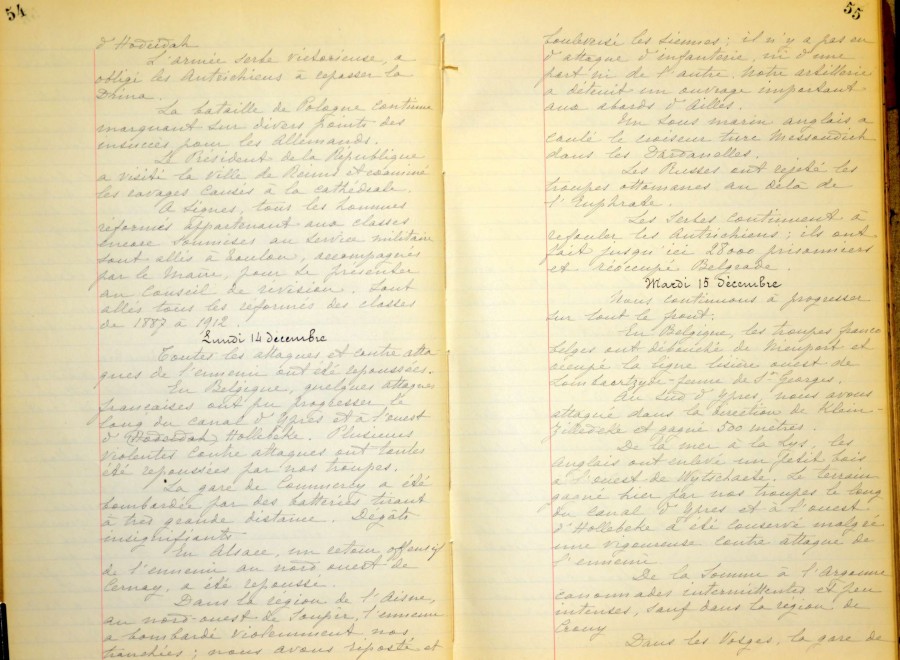 54
d'Hodeidah
L'armée serbe victorieuse, a
obligé les Autrichiens à repasser la
Drina.
La bataille de Pologne continue
marquant sur divers points des
insuccès pour les Allemands.
Le Président de la République
a visité la ville de Reims et examiné
les ravages causés à la cathédrale.
A Signes, tous les hommes
réformés appartenant aux classes
encore soumises au service militaire
sont allés à Toulon, accompagnés
par le Maire, pour se présenter
au Conseil de révision. Sont
allés tous les réformés des classes
de 1887 à 1912.
Lundi 14 décembre
Toutes les attaques et contre atta
ques de l'ennemi ont été repoussées.
En Belgique, quelques attaques
françaises ont pu progresser le
long du canal d'Ypres et à l'ouest
d'(Hodeidah) Hollebeke. Plusieurs
violentes contre attaques ont toutes
été repoussées par nos troupes.
La gare de Commercy a été
bombardée par des batteries tirant
à très grande distance. Dégâts
insignifiants
En Alsace, un retour offensif
de l'ennemi au nord ouest de
Cernay, a été repoussé.
Dans la région de l'Aisne,
au nord-ouest de Soupir, l'ennemi
a bombardé violemment nos
tranchées ; nous avons riposté et
55
bouleversé les siennes ; il n'y a pas eu
d'attaque d'infanterie, ni d'une
part ni de l'autre. Notre artillerie
a détruit un ouvrage important
aux abords d'Ailles.
Un sous marin anglais a
coulé le croiseur turc Messoudieh
dans les Dardanelles.
Les Russes ont rejeté les
troupes ottomanes au delà de
l'Euphrate.
Les Serbes continuent à
refouler les Autrichiens ; ils ont
fait jusqu'ici 28000 prisonniers
et réoccupé Belgrade.
Mardi 15 décembre
Nous continuons à progresser
sur tout le front:
En Belgique, les troupes franco
belges ont débouché de Nieuport et
occupé la ligne lisière ouest de
Lombaertzyde-ferme de St Georges.
Au sud d'Ypres, nous avons
attaqué dans la direction de Klein-
Zillebeke et gagné 500 mètres.
De la mer à la Lys, les
Anglais ont enlevé un petit bois
à l'ouest de Wytschaete. Le terrain
gagné hier par nos troupes le long
du canal d'Ypres et à l'ouest
d'Hollebeke a été conservé malgré
une vigoureuse contre attaque de
l'ennemi
De la Somme à l'Argonne
canonnades intermittentes et peu
intenses, sauf dans la région de
Crouy
Dans les Vosges, la gare de